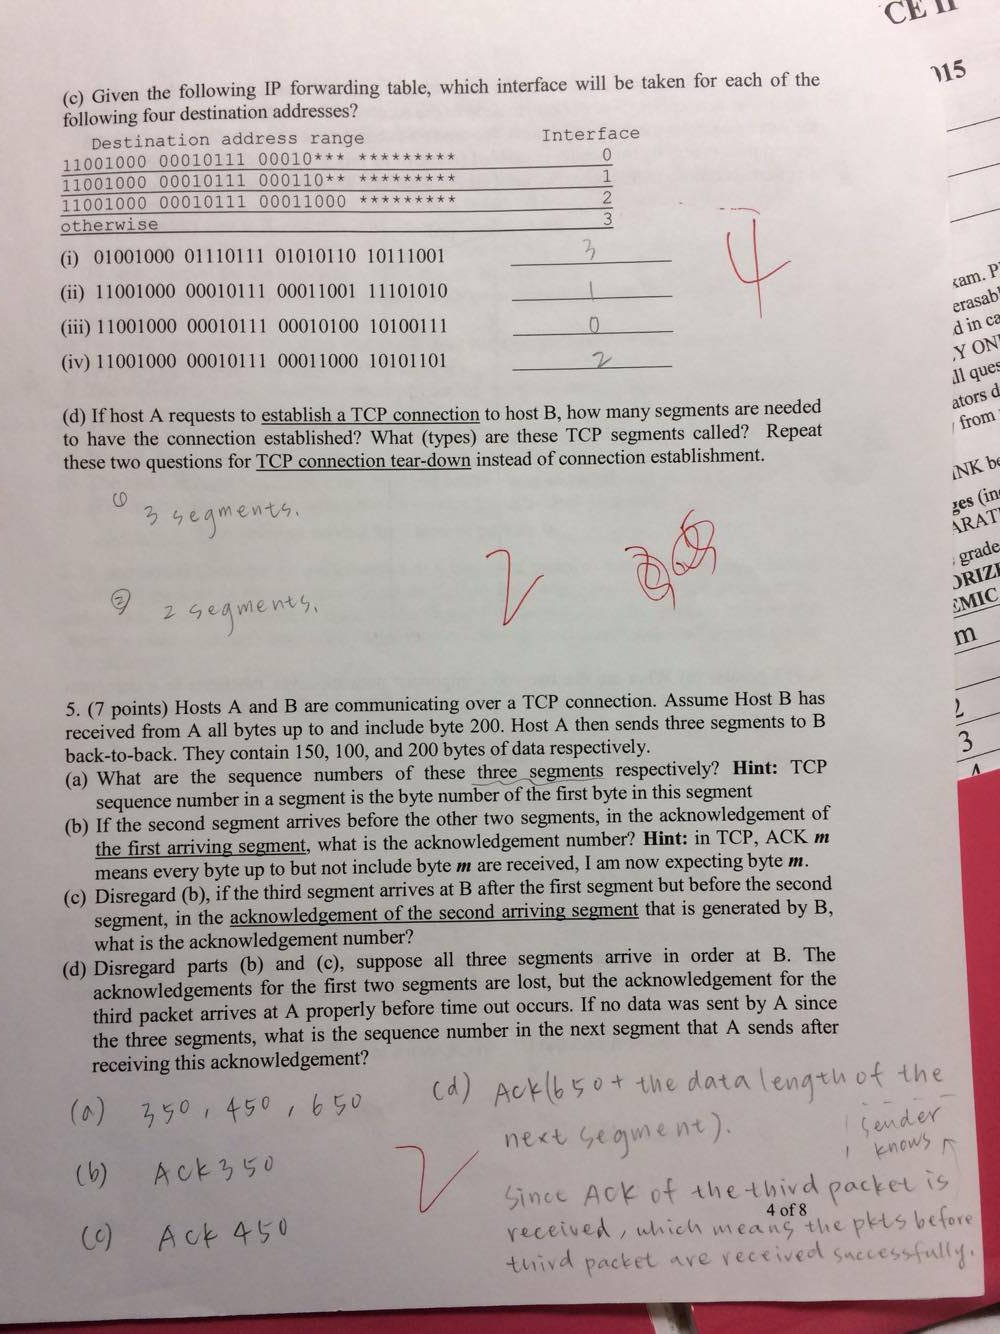 CE II
015
(c) Given the following IP forwarding table, which interface will be taken for each of the
following four destination addresses?
Destination address range Interface
11001000 00010111 00010*** ********* 0
11001000 00010111 000110** ********* 1
11001000 00010111 00011000 ********* 2
otherwise 3
4
(i) 01001000 01110111 01010110 10111001 3
(ii) 11001000 00010111 00011001 11101010 1
(iii) 11001000 00010111 00010100 10100111 0
(iv) 11001000 00010111 00011000 10101101 2
(d) If host A requests to establish a TCP connection to host B, how many segments are needed
to have the connection established? What (types) are these TCP segments called? Repeat
these two questions for TCP connection tear-down instead of connection establishment.
① 3 segments.
2
② 2 segments.
5. (7 points) Hosts A and B are communicating over a TCP connection. Assume Host B has
received from A all bytes up to and include byte 200. Host A then sends three segments to B
back-to-back. They contain 150, 100, and 200 bytes of data respectively.
(a) What are the sequence numbers of these three segments respectively? Hint: TCP
sequence number in a segment is the byte number of the first byte in this segment
(b) If the second segment arrives before the other two segments, in the acknowledgement of
the first arriving segment, what is the acknowledgement number? Hint: in TCP, ACK m
means every byte up to but not include byte m are received, I am now expecting byte m.
(c) Disregard (b), if the third segment arrives at B after the first segment but before the second
segment, in the acknowledgement of the second arriving segment that is generated by B,
what is the acknowledgement number?
(d) Disregard parts (b) and (c), suppose all three segments arrive in order at B. The
acknowledgements for the first two segments are lost, but the acknowledgement for the
third packet arrives at A properly before time out occurs. If no data was sent by A since
the three segments, what is the sequence number in the next segment that A sends after
receiving this acknowledgement?
(a) 350, 450, 650
(b) Ack 350
(c) Ack 450
2
(d) Ack(650 + the data length of the
next segment).
sender
knows
Since ACK of the third packet is
received, which means the pkts before
third packet are received successfully.
4 of 8
xam. P
erasab
d in ca
Y ON
ll ques
ators d
from
INK be
ges (in
ARAT
grade
ORIZE
EMIC
m
2
3